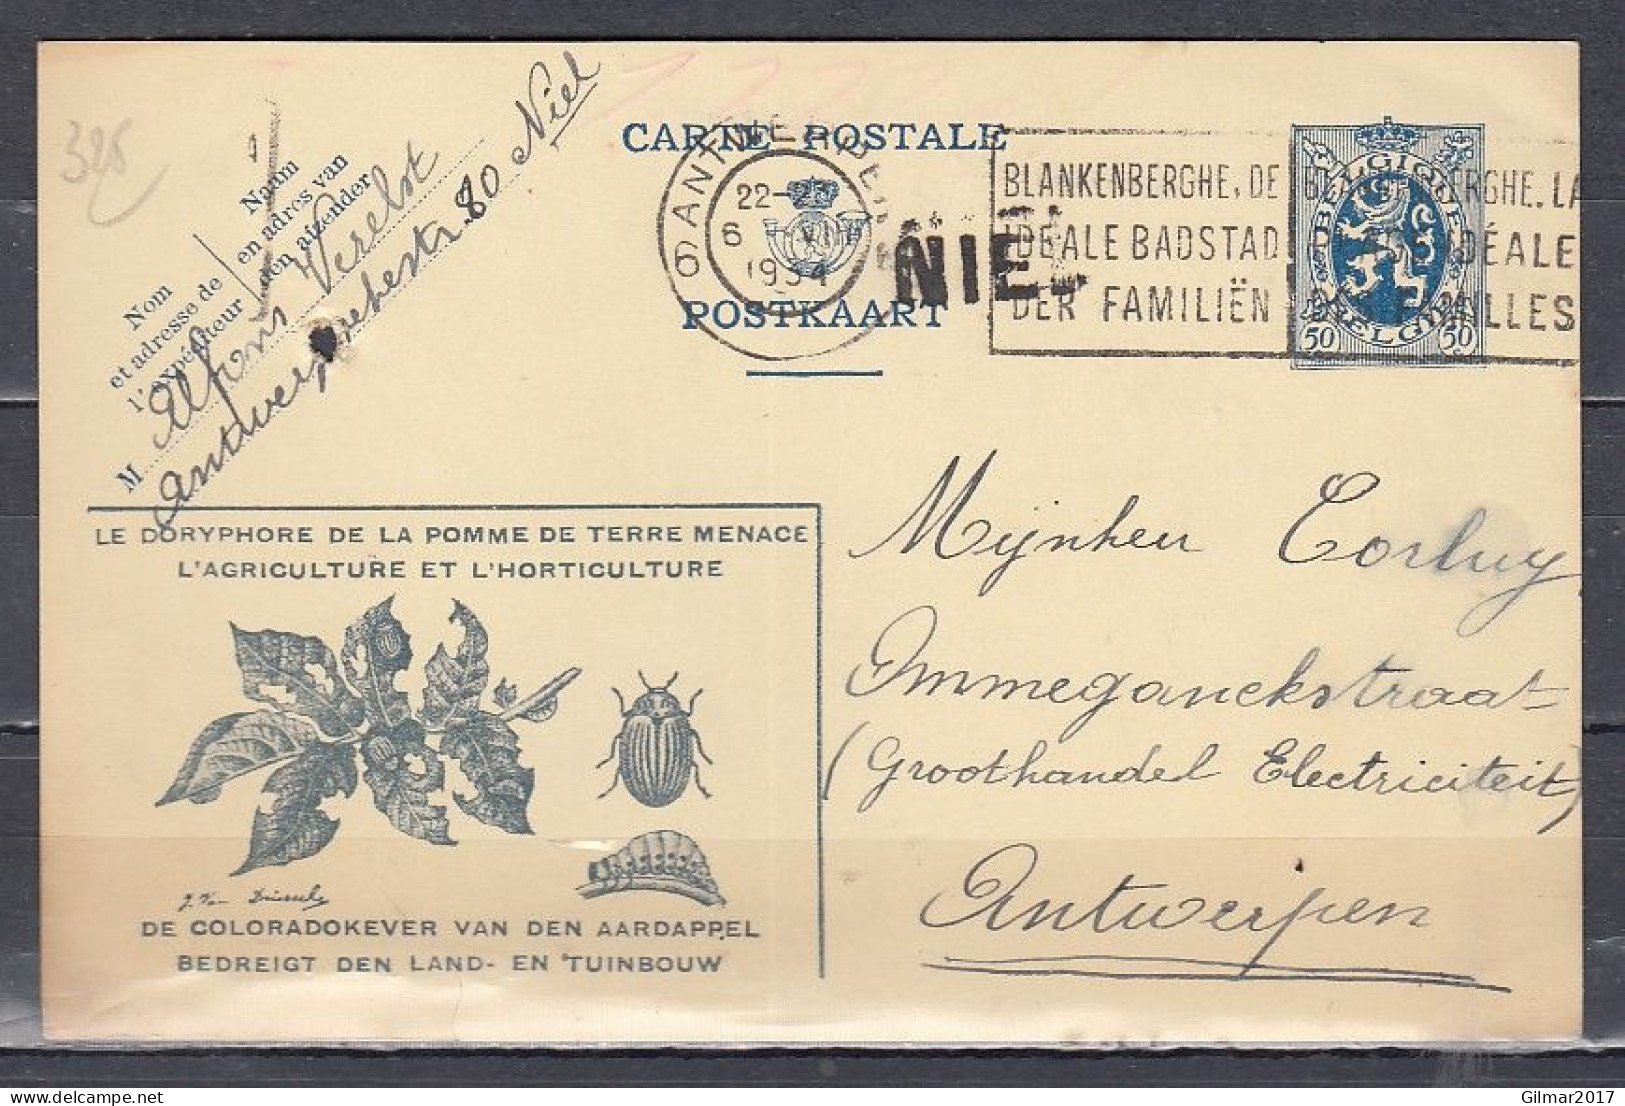 326
CARTE POSTALE
POSTKAART
6 ANTWERPEN
22-23
6 VI
1934
NIEL
BLANKENBERGHE, DE
IDEALE BADSTAD
DER FAMILIËN
BLANKENBERGHE. LA
IDÉALE
FAMILLES
BELGIQUE
BELGIË
50 50
Naam
en adres van
den afzender
Nom
et adresse de
l'expéditeur
M Alfons Verelst
Antwerpschestr 80 Niel
LE DORYPHORE DE LA POMME DE TERRE MENACE
L'AGRICULTURE ET L'HORTICULTURE
J. Van Driessche
DE COLORADOKEVER VAN DEN AARDAPPEL
BEDREIGT DEN LAND- EN TUINBOUW
Mijnheer Corluy
Ommeganckstraat
(Groothandel Electriciteit)
Antwerpen
Gilmar2017